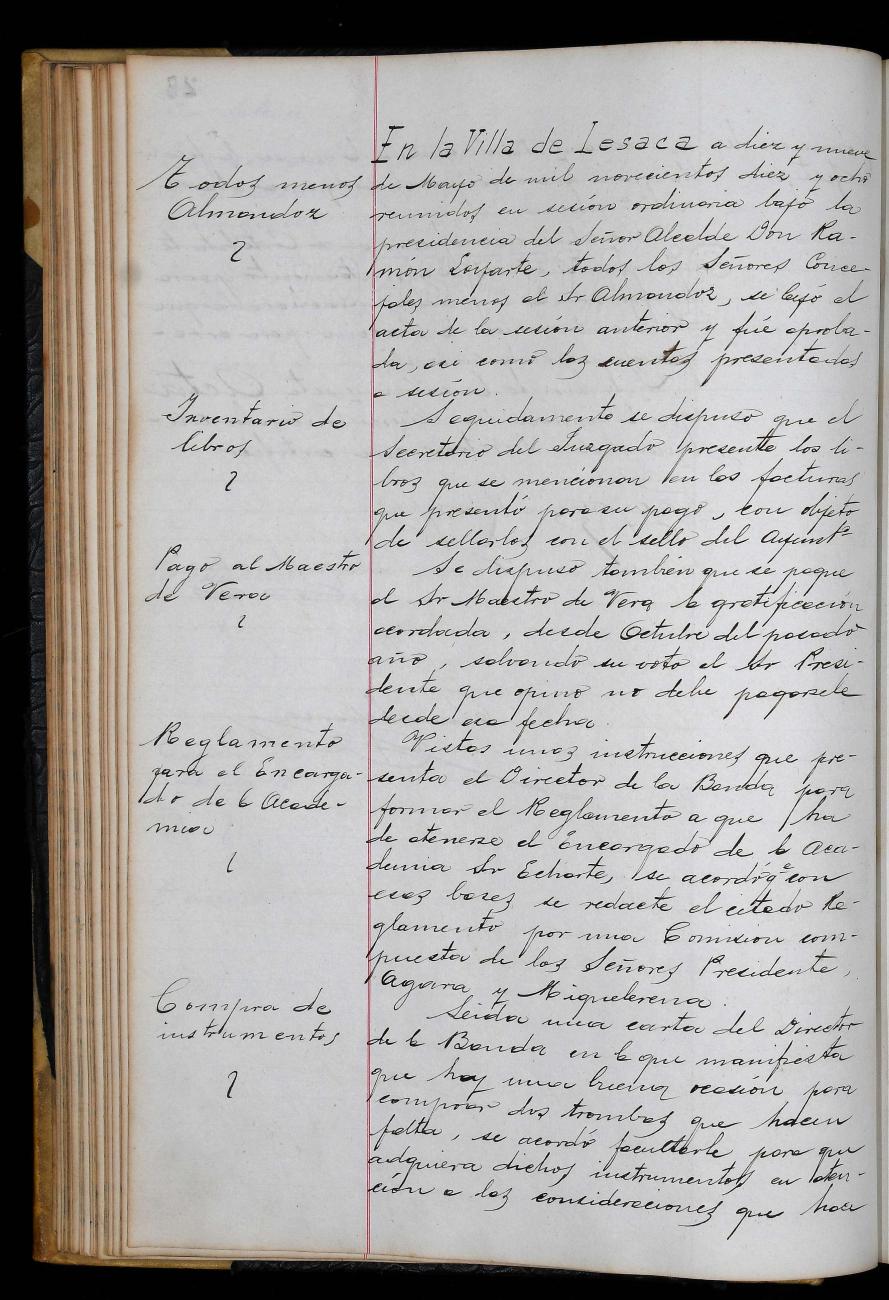 En la Villa de Lesaca a diez y nueve
Todos menos
Almandoz
de Mayo de mil novecientos diez y ocho
reunidos en sesión ordinaria bajo la
presidencia del Señor Alcalde Don Ra-
món Loyarte, todos los Señores Conce-
jales menos el Sr Almandoz, se leyó el
acta de la sesión anterior y fué aproba-
da, asi como las cuentas presentadas
a sesión.
Inventario de
libros
Seguidamente se dispuso que el
Secretario del Juzgado presente los li-
bros que se mencionan en las facturas
que presentó para su pago, con objeto
de sellarlos con el sello del Ayuntº
Pago al Maestro
de Vera
Se dispuso tambien que se pague
al Sr Maestro de Vera la gratificación
acordada, desde Octubre del pasado
año, salvando su voto el Sr Presi-
dente que opino no debe pagarsele
desde esa fecha.
Reglamento
para el Encarga-
do de la Acade-
mia
Vistas unas instrucciones que pre-
senta el Director de la Banda para
formar el Reglamento a que ha
de atenerse el Encargado de la Aca-
demia Sr Echarte, se acordó qe con
esas bases se redacte el citado Re-
glamento por una Comision com-
puesta de los Señores Presidente,
Agara y Miquelerena.
Compra de
instrumentos
Leida una carta del Director
de la Banda en la que manifiesta
que hay una buena ocasión para
comprar dos trombas que hacen
falta, se acordó facultarle para que
adquiera dichos instrumentos en aten-
ción a las consideraciones que hace